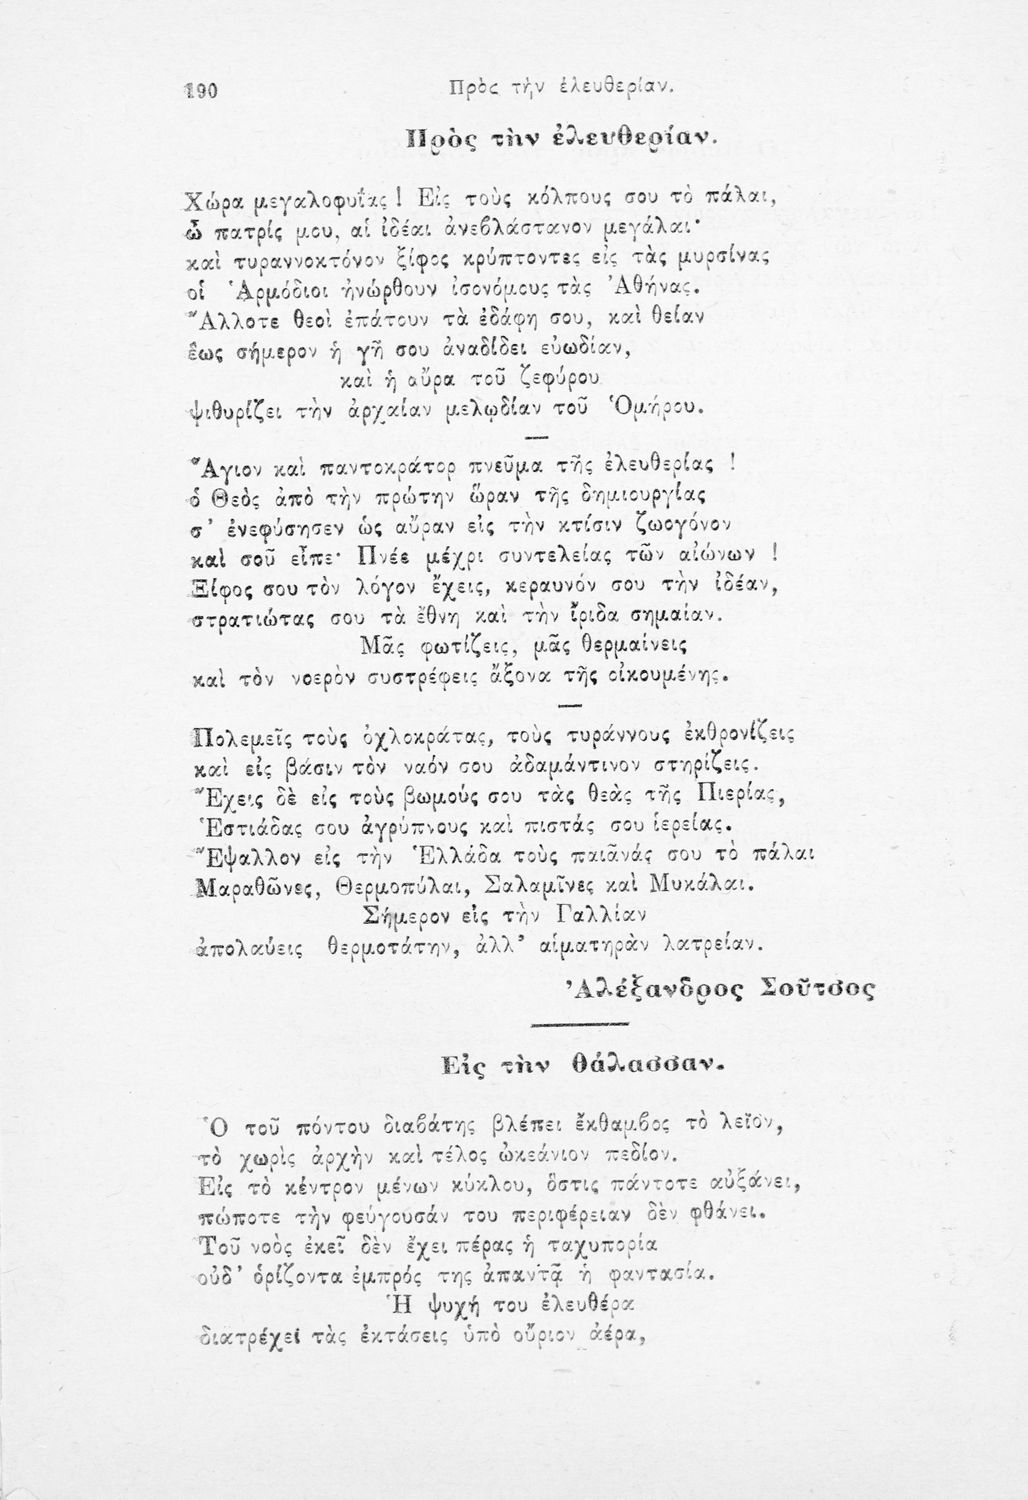 190
Πρὸς τὴν ἐλευθερίαν.
Πρὸς τὴν ἐλευθερίαν.
Χώρα μεγαλοφυΐας ! Εἰς τοὺς κόλπους σου τὸ πάλαι,
ὦ πατρίς μου, αἱ ἰδέαι ἀνεβλάστανον μεγάλαι·
καὶ τυραννοκτόνον ξίφος κρύπτοντες εἰς τὰς μυρσίνας
οἱ Ἁρμόδιοι ἠνώρθουν ἰσονόμους τὰς Ἀθήνας.
Ἄλλοτε θεοὶ ἐπάτουν τὰ ἐδάφη σου, καὶ θείαν
ἕως σήμερον ἡ γῆ σου ἀναδίδει εὐωδίαν,
καὶ ἡ αὔρα τοῦ ζεφύρου
ψιθυρίζει τὴν ἀρχαίαν μελῳδίαν τοῦ Ὁμήρου.
Ἅγιον καὶ παντοκράτορ πνεῦμα τῆς ἐλευθερίας !
ὁ Θεὸς ἀπὸ τὴν πρώτην ὥραν τῆς δημιουργίας
σ' ἐνεφύσησεν ὡς αὔραν εἰς τὴν κτίσιν ζωογόνον
καὶ σοῦ εἶπε· Πνέε μέχρι συντελείας τῶν αἰώνων !
Ξίφος σου τὸν λόγον ἔχεις, κεραυνόν σου τὴν ἰδέαν,
στρατιώτας σου τὰ ἔθνη καὶ τὴν ἴριδα σημαίαν.
Μᾶς φωτίζεις, μᾶς θερμαίνεις
καὶ τὸν νοερὸν συστρέφεις ἄξονα τῆς οἰκουμένης.
Πολεμεῖς τοὺς ὀχλοκράτας, τοὺς τυράννους ἐκθρονίζεις
καὶ εἰς βάσιν τὸν ναόν σου ἀδαμάντινον στηρίζεις.
Ἔχεις δὲ εἰς τοὺς βωμούς σου τὰς θεὰς τῆς Πιερίας,
Ἑστιάδας σου ἀγρύπνους καὶ πιστάς σου ἱερείας.
Ἔψαλλον εἰς τὴν Ἑλλάδα τοὺς παιᾶνάς σου τὸ πάλαι
Μαραθῶνες, Θερμοπύλαι, Σαλαμῖνες καὶ Μυκάλαι.
Σήμερον εἰς τὴν Γαλλίαν
ἀπολαύεις θερμοτάτην, ἀλλ' αἱματηρὰν λατρείαν.
Ἀλέξανδρος Σοῦτσος
Εἰς τὴν θάλασσαν.
Ὁ τοῦ πόντου διαβάτης βλέπει ἔκθαμβος τὸ λεῖον,
τὸ χωρὶς ἀρχὴν καὶ τέλος ὠκεάνιον πεδίον.
Εἰς τὸ κέντρον μένων κύκλου, ὅστις πάντοτε αὐξάνει,
πώποτε τὴν φεύγουσάν του περιφέρειαν δὲν φθάνει.
Τοῦ νοὸς ἐκεῖ δὲν ἔχει πέρας ἡ ταχυπορία
οὐδ' ὁρίζοντα ἐμπρός της ἀπαντᾷ ἡ φαντασία.
Ἡ ψυχή του ἐλευθέρα
διατρέχει τὰς ἐκτάσεις ὑπὸ οὔριον ἀέρα,